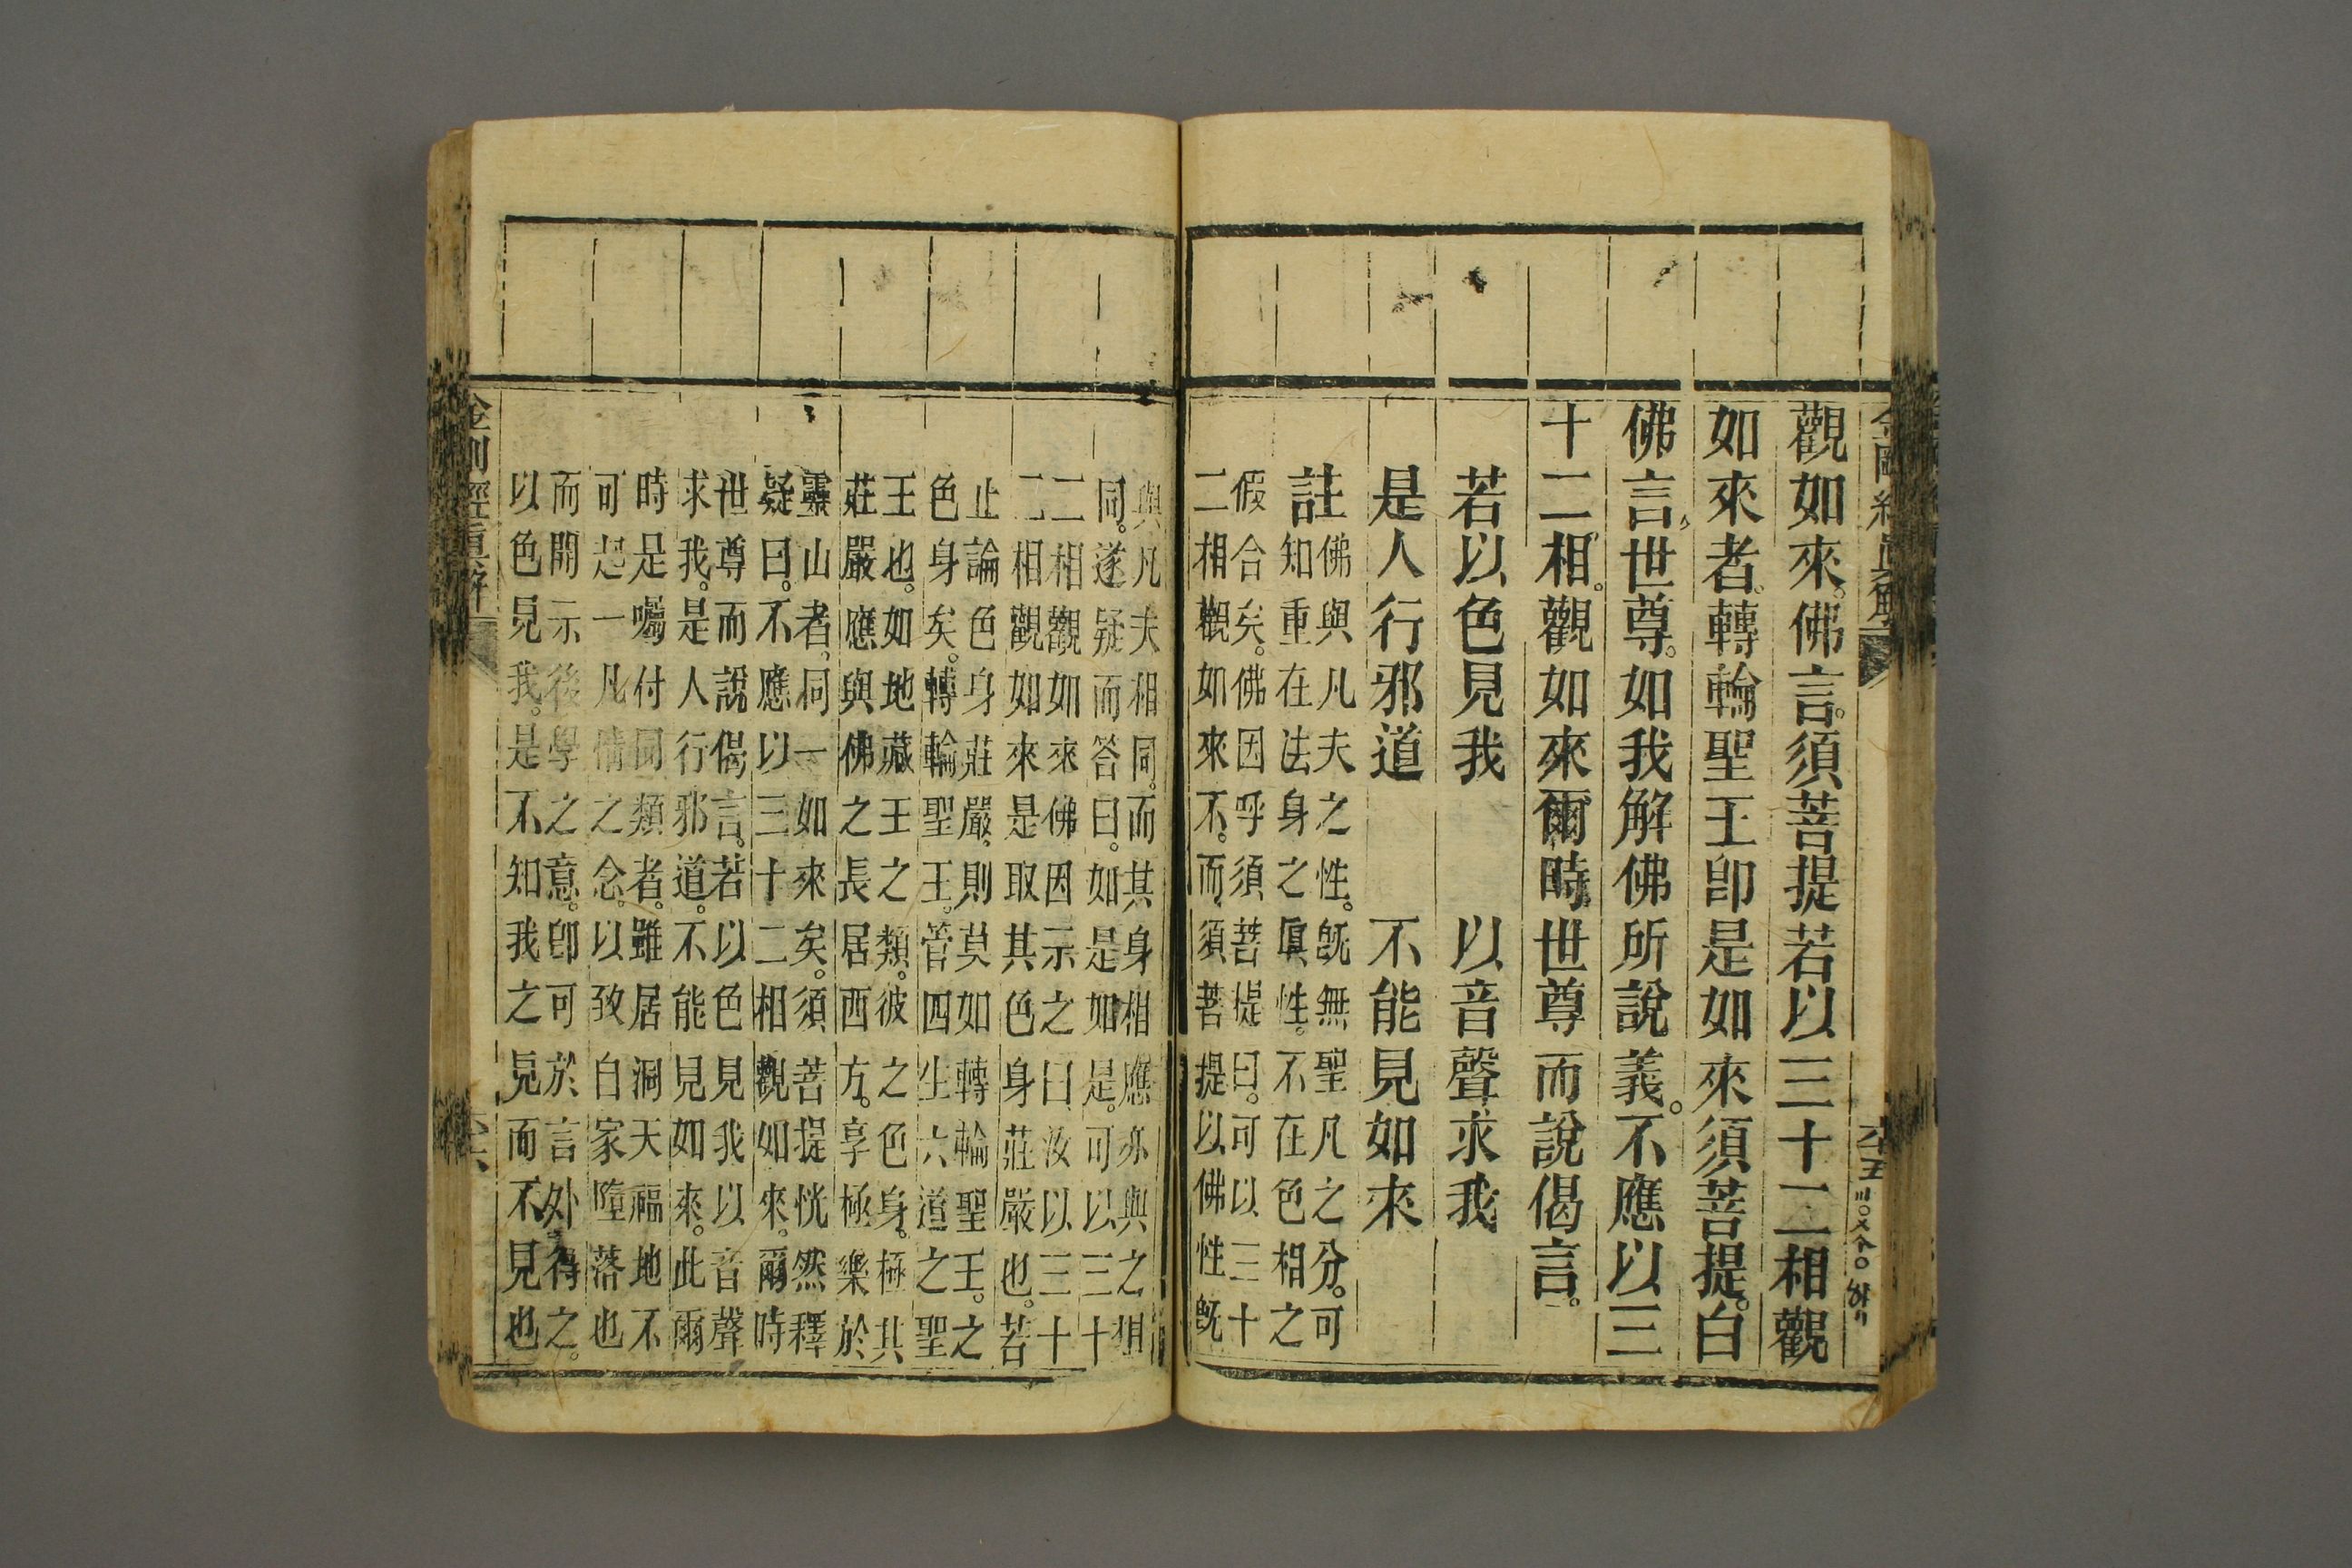 觀如來。佛言。須菩提若以三十二相觀
如來者。轉輪聖王卽是如來須菩提。白
佛言、世尊。如我解佛所說義。不應以三
十二相。觀如來爾時世尊而說偈言。
若以色見我　以音聲求我
是人行邪道　不能見如來
註
佛與凡夫之性。旣無聖凡之分。可
知重在法身之眞性。不在色相之
假合矣。佛因呼須菩提曰。可以三十
二相觀如來不。而須菩提以佛性旣
與凡夫相同。而其身相應亦與之相
同。遂疑而答曰。如是如是。可以三十
二相觀如來佛因示之曰汝以三十
二相觀如來是取其色身莊嚴也。若
止論色身莊嚴、則莫如轉輪聖王。之
色身矣。轉輪聖王。管四生六道之聖
王也。如地藏王之類。彼之色身。極其
莊嚴應與佛之長居西方。享極樂於
靈山者、同一如來矣。須菩提恍然釋
疑曰。不應以三十二相觀如來。爾時
世尊而說偈言。若以色見我以音聲
求我。是人行邪道。不能見如來。此爾
時是囑付同類者。雖居洞天福地不
可起一凡情之念。以致白家墮落也
而開示後學之意。卽可於言外。得之。
以色見我。是不知我之見而不見也
金剛經眞解
六十五
金剛經眞解